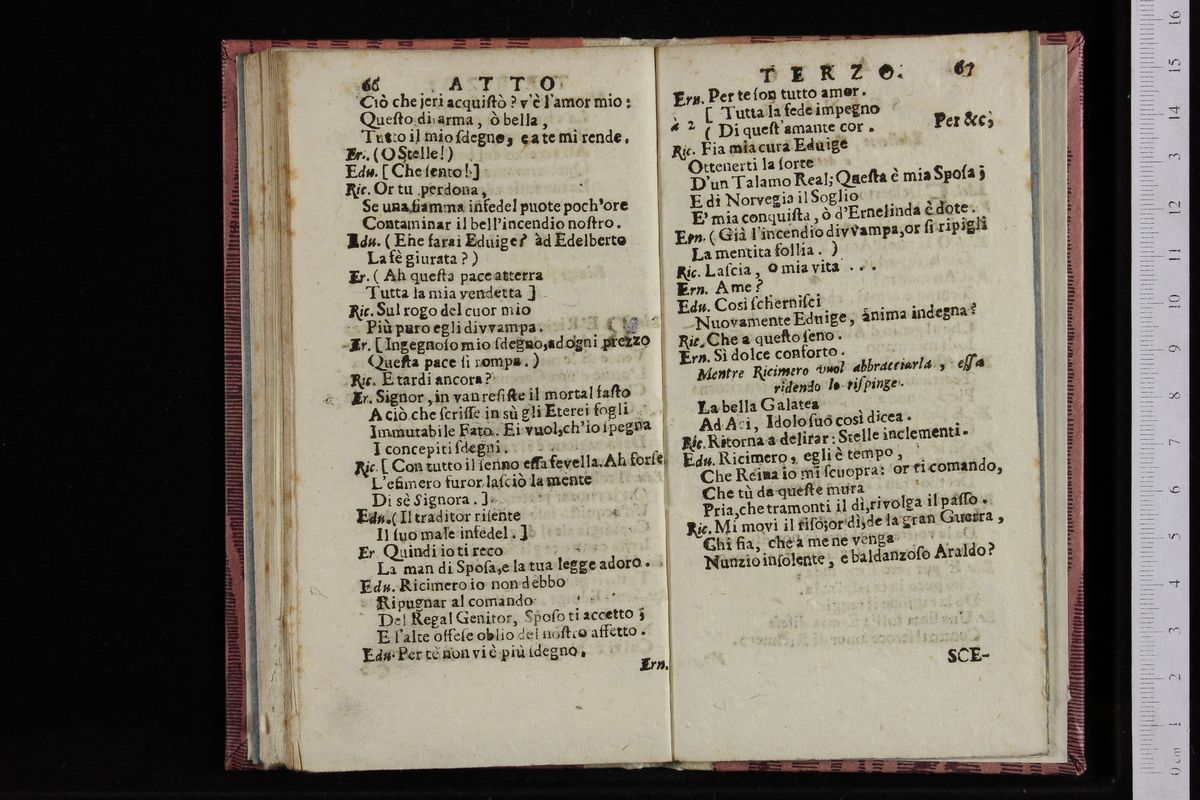 66 ATTO
Ciò che jeri acquistò? v'è l'amor mio:
Questo disarma, ò bella,
Tutto il mio sdegno, e a te mi rende.
Er. (O Stelle!)
Edu. [Che sento!]
Ric. Or tu perdona,
Se una fiamma infedel puote poch'ore
Contaminar il bell'incendio nostro.
Edu. (Ehe farai Eduige? àd Edelberto
La fè giurata?)
Er. (Ah questa pace atterra
Tutta la mia vendetta]
Ric. Sul rogo del cuor mio
Più puro egli divvampa.
Er. [Ingegnoso mio sdegno, ad ogni prezzo
Questa pace si rompa.)
Ric. E tardi ancora?
Er. Signor, in van resiste il mortal fasto
A ciò che scrisse in sù gli Eterei fogli
Immutabile Fato. Ei vuol, ch'io spegna
I concepiti sdegni.
Ric. [Con tutto il senno essa fevella. Ah forse
L'efimero furor lasciò la mente
Di sè Signora.]
Edu. (Il traditor risente
Il suo male infedel.]
Er. Quindi io ti reco
La man di Sposa, e la tua legge adoro.
Edu. Ricimero io non debbo
Ripugnar al comando
Del Regal Genitor, Sposo ti accetto;
E l'alte offese oblio del nostro affetto.
Edu. Per tè non vi è più sdegno.
Ern.
TERZO. 67
Ern. Per te son tutto amor.
à 2 [Tutta la fede impegno
(Di quest'amante cor. Per &c;
Ric. Fia mia cura Eduige
Ottenerti la sorte
D'un Talamo Real; Questa è mia Sposa;
E di Norvegia il Soglio
E' mia conquista, ò d'Ernelinda è dote.
Ern. (Già l'incendio divvampa, or si ripigli
La mentita follia.)
Ric. Lascia, o mia vita ...
Ern. A me?
Edu. Così schernisci
Nuovamente Eduige, ànima indegna?
Ric. Che a questo seno.
Ern. Sì dolce conforto.
Mentre Ricimero vuol abbracciarla, essa
ridendo lo rispinge.
La bella Galatea
Ad Aci, Idolo suo così dicea.
Ric. Ritorna a delirar: Stelle inclementi.
Edu. Ricimero, egli è tempo,
Che Reina io mi scuopra: or ti comando,
Che tù da queste mura
Pria, che tramonti il dì, rivolga il passo.
Ric. Mi movi il riso; or dì, de la gran Guerra,
Chi fia, che a me ne venga
Nunzio insolente, e baldanzoso Araldo?
SCE-
0 cm 1 2 3 4 5 6 7 8 9 10 11 12 13 14 15 16